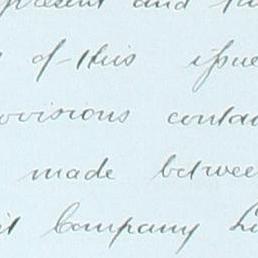 present and fu
of this issue
ovisions contai
made betwee
it Company Li